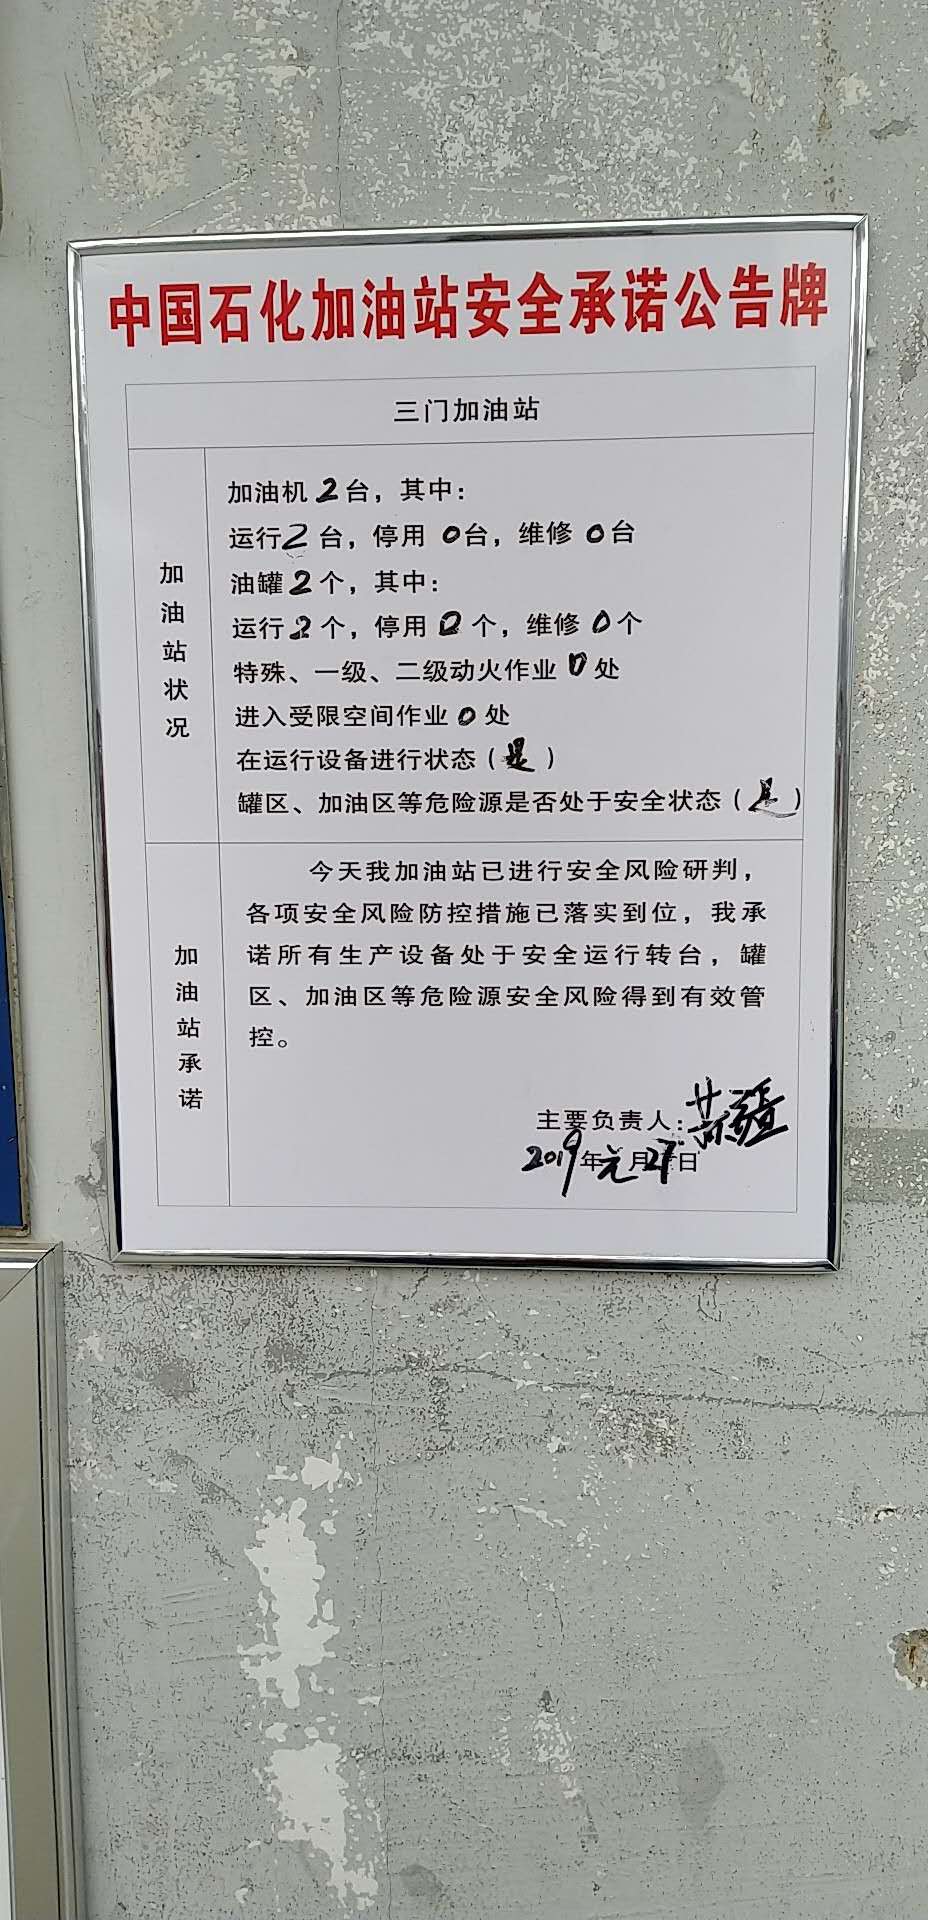 中国石化加油站安全承诺公告牌
三门加油站
加油站状况
加油机2台，其中：
运行2台，停用0台，维修0台
油罐2个，其中：
运行2个，停用0个，维修0个
特殊、一级、二级动火作业0处
进入受限空间作业0处
在运行设备进行状态（是）
罐区、加油区等危险源是否处于安全状态（是）
加油站承诺
今天我加油站已进行安全风险研判，
各项安全风险防控措施已落实到位，我承
诺所有生产设备处于安全运行转台，罐
区、加油区等危险源安全风险得到有效管
控。
主要负责人：
2019年元月27日